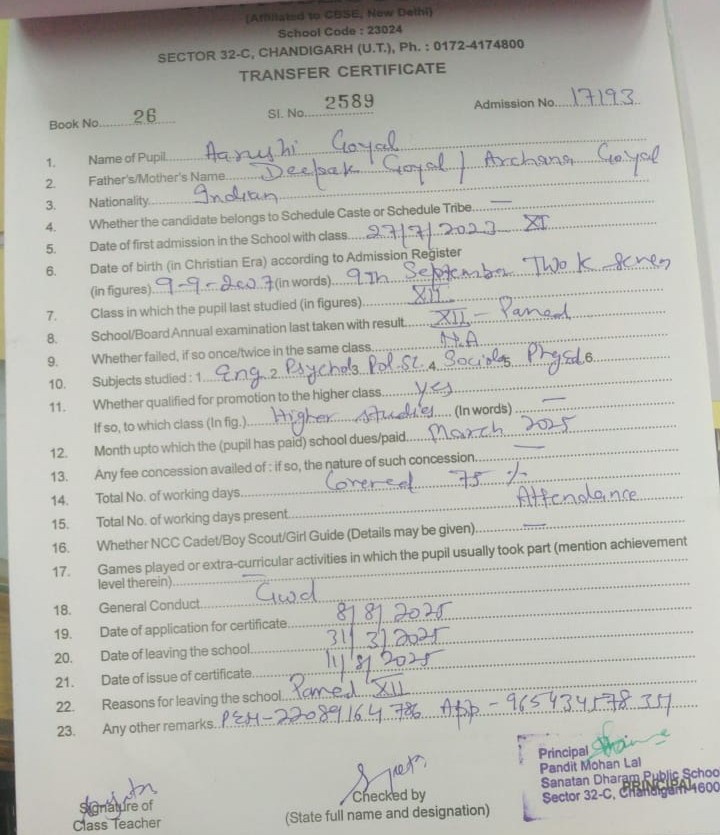 (Affiliated to CBSE, New Delhi)
School Code : 23024
SECTOR 32-C, CHANDIGARH (U.T.), Ph. : 0172-4174800
TRANSFER CERTIFICATE
Book No. 26 Sl. No. 2589 Admission No. 17193
1. Name of Pupil Aarushi Goyal
2. Father's/Mother's Name Deepak Goyal / Archana Goyal
3. Nationality Indian
4. Whether the candidate belongs to Schedule Caste or Schedule Tribe. —
5. Date of first admission in the School with class 27/7/2023 XI
6. Date of birth (in Christian Era) according to Admission Register
(in figures) 9-9-2007 (in words) 9th September Two K Seven
7. Class in which the pupil last studied (in figures) XII
8. School/Board Annual examination last taken with result XII - Passed
9. Whether failed, if so once/twice in the same class N.A
10. Subjects studied : 1. Eng 2 Psycho 3 Pol.Sc. 4 Sociolo 5 Phy.Ed 6.
11. Whether qualified for promotion to the higher class yes
If so, to which class (In fig.) Higher studies (In words) —
12. Month upto which the (pupil has paid) school dues/paid March 2025
13. Any fee concession availed of : if so, the nature of such concession. —
14. Total No. of working days Covered 75 %
15. Total No. of working days present Attendance
16. Whether NCC Cadet/Boy Scout/Girl Guide (Details may be given) —
17. Games played or extra-curricular activities in which the pupil usually took part (mention achievement
level therein) —
18. General Conduct Good
19. Date of application for certificate 8/8/2025
20. Date of leaving the school 31/3/2025
21. Date of issue of certificate 11/8/2025
22. Reasons for leaving the school Passed XII
23. Any other remarks PEN-22089164786 App -
Signature of
Class Teacher
Checked by
(State full name and designation)
Principal
Pandit Mohan Lal
Sanatan Dharam Public School
PRINCIPAL
Sector 32-C, Chandigarh